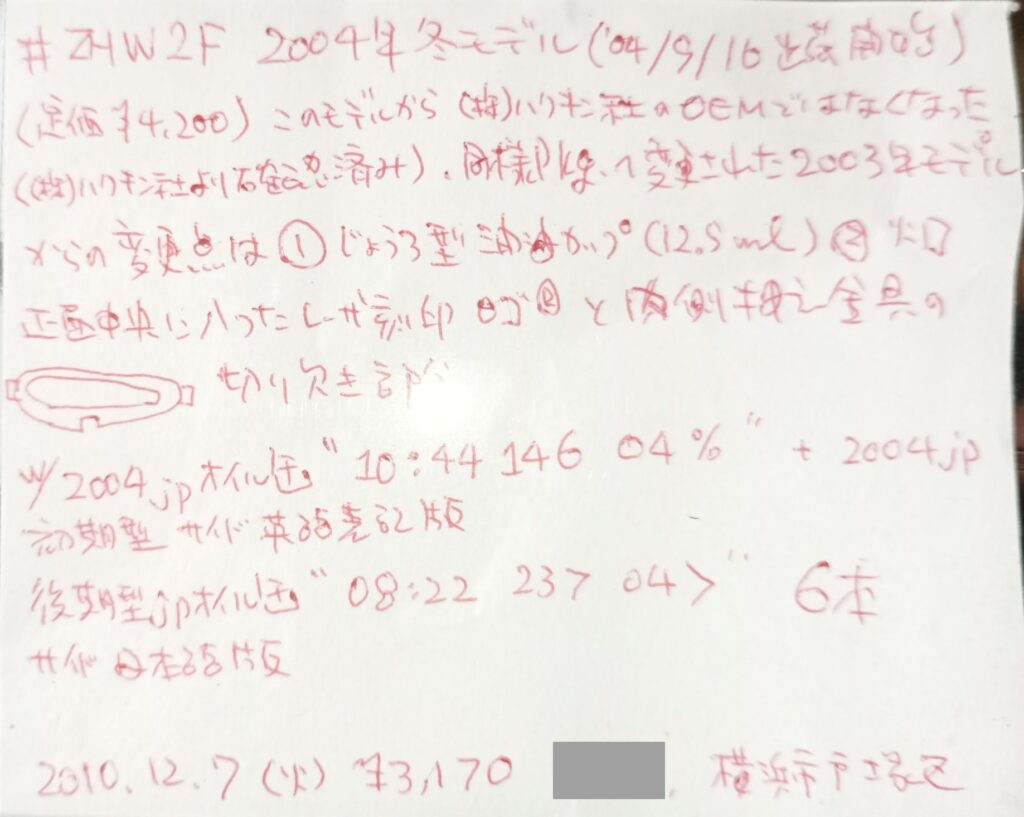 #ZHW2F 2004年冬モデル('04/9/16出荷開始)
(定価¥4,200) このモデルから(株)ハクキン社のOEMではなくなった
((株)ハクキン社より確認済み). 同様Pkg.へ変更された2003年モデル
からの変更点は①じょうろ型注油カップ(12.5ml)②火口
正面中央に入ったレーザ刻印ロゴ と内側押え金具の
切り欠き部
w/2004jpオイル缶“10:44 146 04%” + 2004jp
初期型 サイド英語表記版
後期型jpオイル缶“08:22 237 04>” 6本
サイド日本語版
2010.12.7(火) ¥3,170 横浜市戸塚区